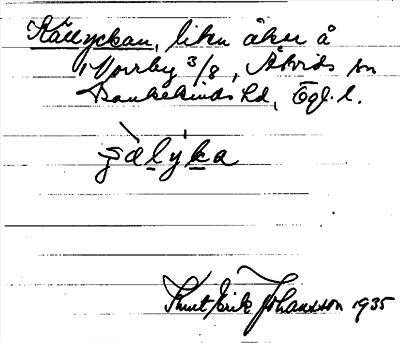 Källyckan, liten åker å
Norrby 3/8, Åtvids sn
Bankekinds hd, Ögl. l.
ɕälyka
Knut Erik Johansson 1935